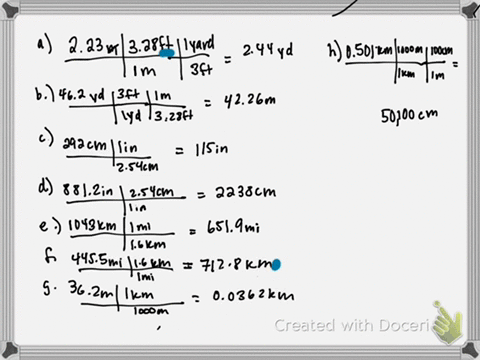 a) 2.23m | 3.28ft | 1yard = 2.44 yd
1m | 3ft
b.) 46.2 yd | 3ft | 1m = 42.26m
1yd | 3.28ft
c) 292cm | 1in = 115in
2.54cm
d) 881.2in | 2.54cm = 2238cm
1in
e.) 1043km | 1mi = 651.9mi
1.6km
f. 445.5mi | 1.6km = 712.8km
1mi
g. 36.2m | 1km = 0.0362km
1000m
h) 0.501km | 1000m | 100cm =
1km | 1m
50,100cm
Created with Doceri